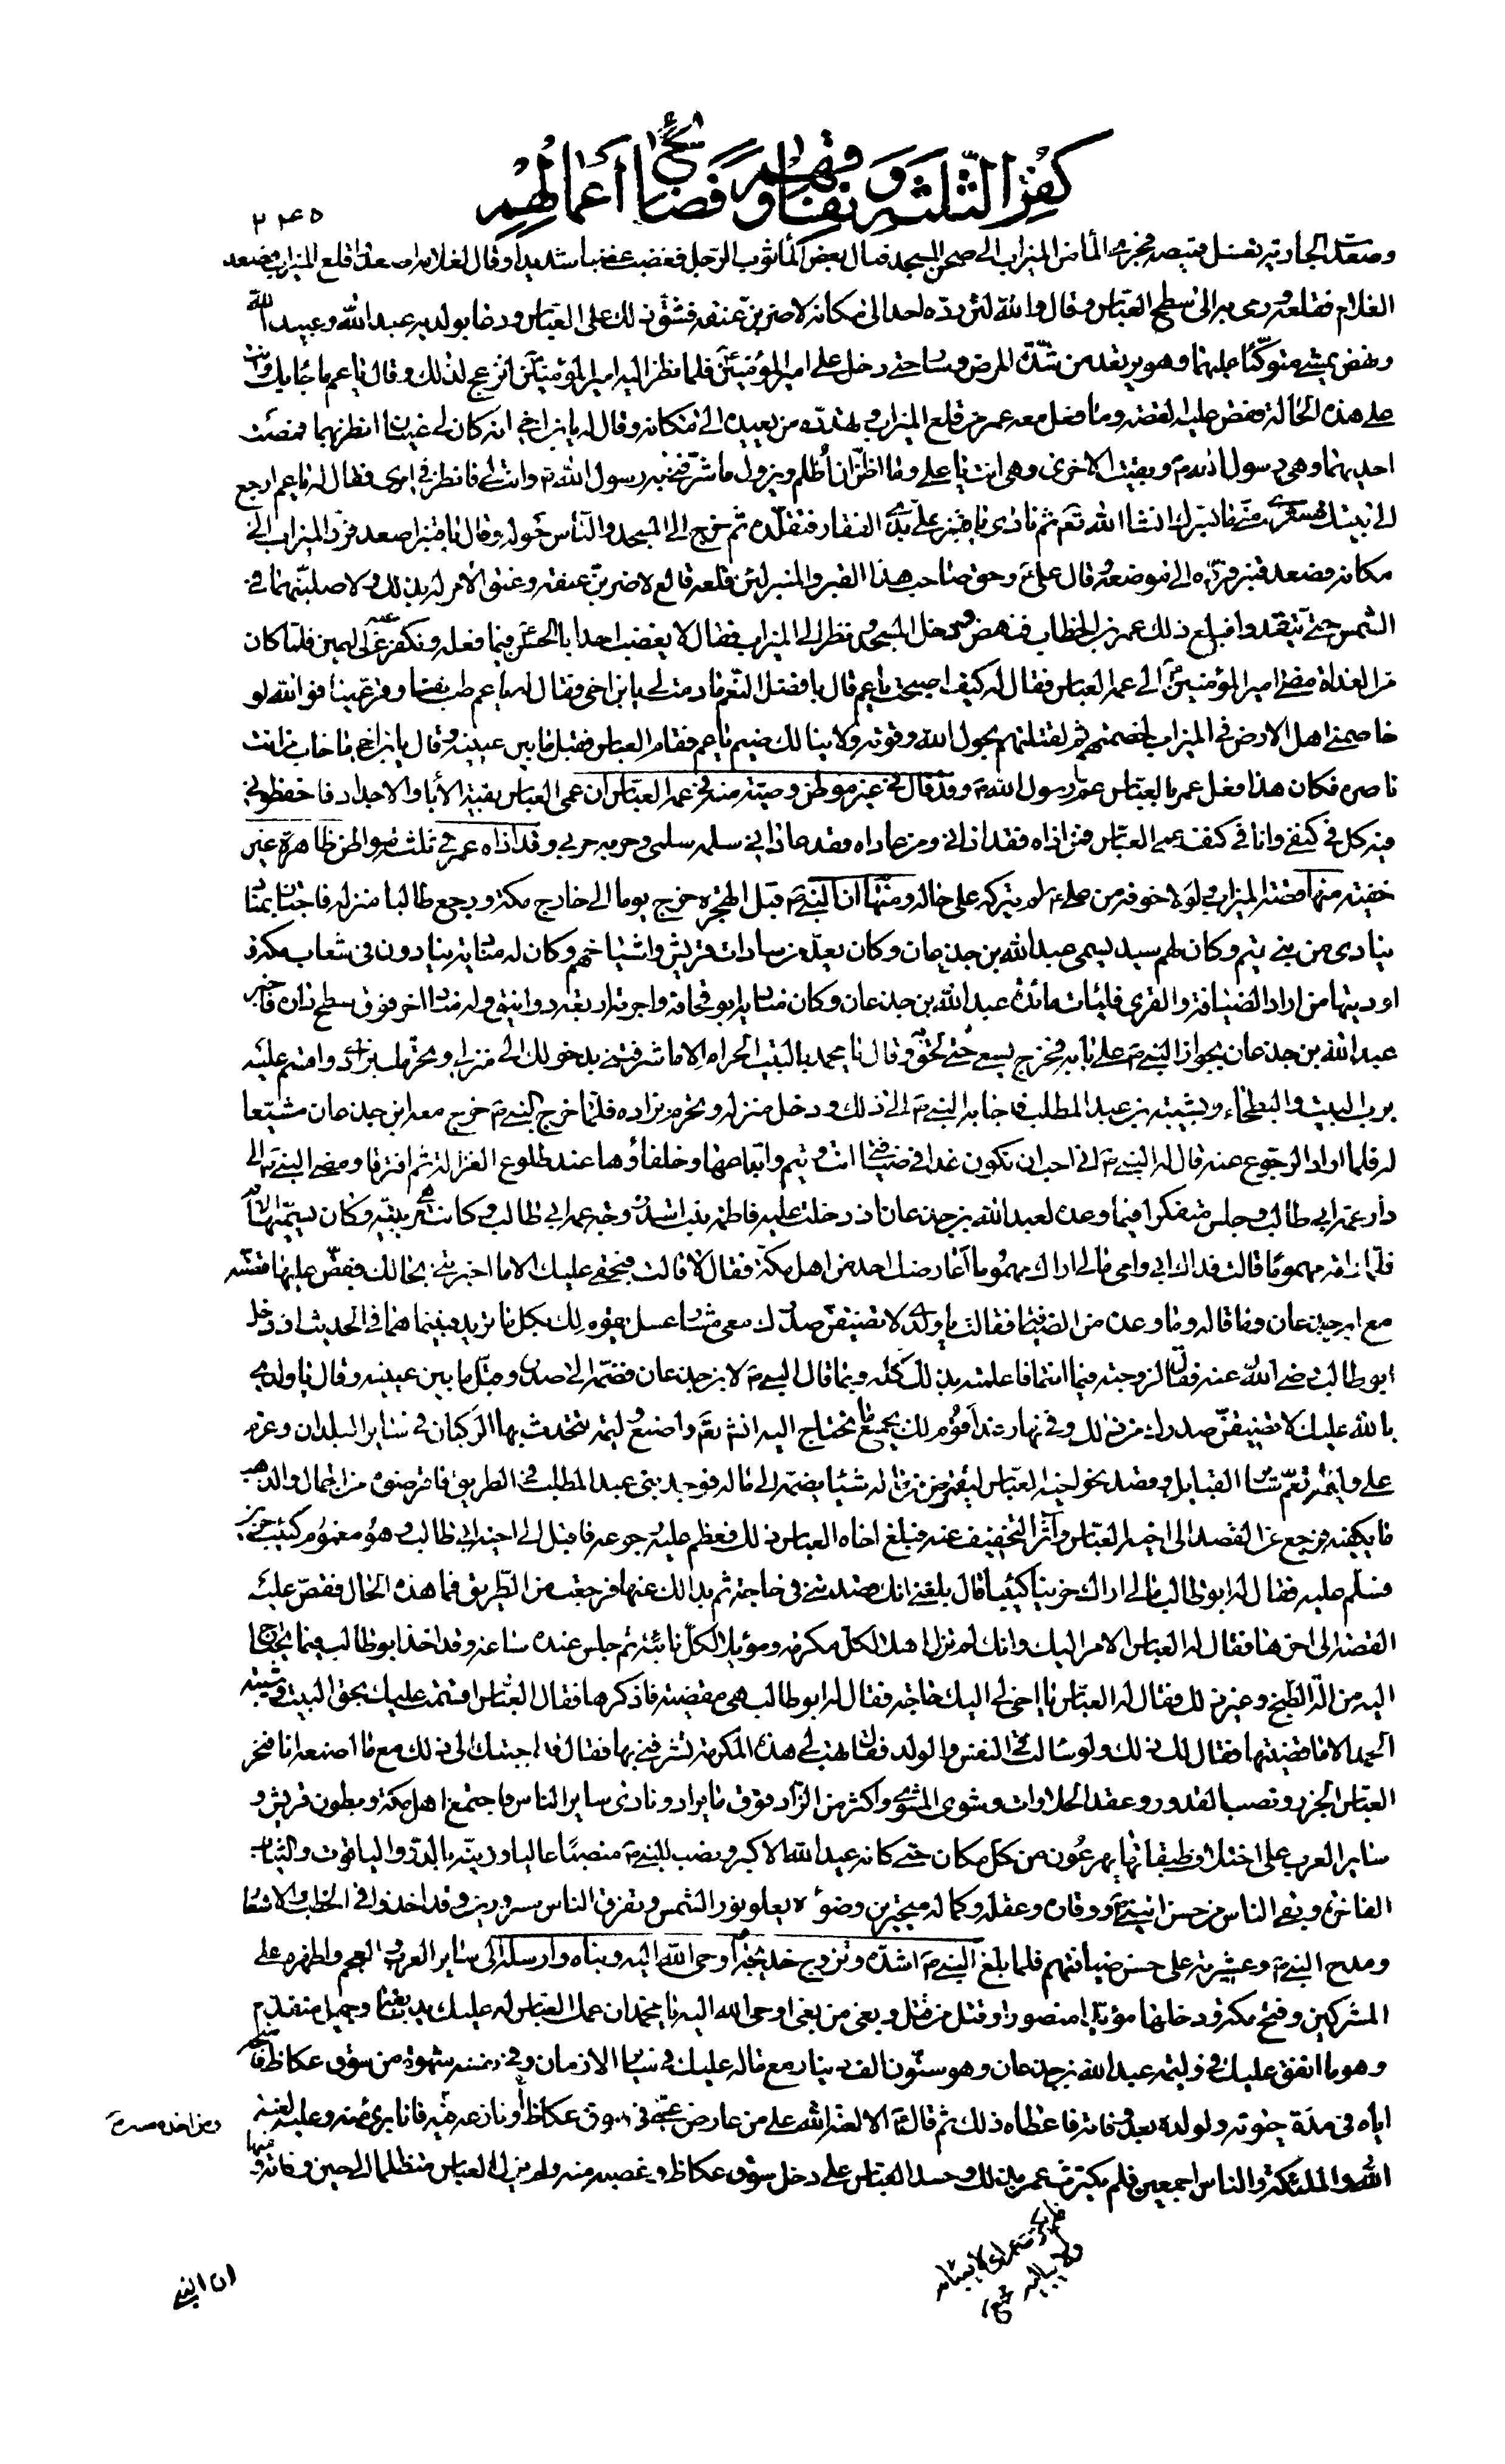 كفر الثلثة ونفاقهم وفضايح أعمالهم
٢٤٥
وصعدت الجارية تغسل قميصه فجرى الماء من الميزاب الى صحن المسجد فنال بعض الماء ثوب الرجل فغضب غضبا شديدا وقال لغلامه اصعد واقلع الميزاب فصعد
الغلام فقلعه ورمى به الى سطح العباس وقال والله لئن رده احد الى مكانه لاضربن عنقه فشق ذلك على العباس ودعا بولديه عبد الله وعبيد الله
ونهض يمشي متوكئا عليهما وهو يرتعد من شدة المرض وسار حتى دخل على امير المؤمنين فلما نظر اليه امير المؤمنين انزعج لذلك وقال يا عم ما جاء بك وانت
على هذه الحالة فقص عليه القصة وما فعل معه عمر من قلع الميزاب وتهدده من يعيده الى مكانه وقال له يا بن اخي انه كان لي عينان انظر بهما فمضت
احديهما وهي رسول الله وبقيت الاخرى وهي انت يا علي وما اظن ان أظلم ويزول ما شرفني به رسول الله وانت لي فانظر في امري فقال له يا عم ارجع
الى بيتك فسترى مني ما يسرك انشاء الله تعم ثم نادى يا قنبر علي بذي الفقار فتقلده ثم خرج الى المسجد والناس حوله وقال يا قنبر اصعد فرد الميزاب الى
مكانه فصعد قنبر فرده الى موضعه قال علي وحق صاحب هذا القبر والمنبر لئن قلعه قالع لاضربن عنقه وعنق الامر له بذلك ولاصلبنهما في
الشمس حتى يتقددا فبلغ ذلك عمر بن الخطاب فنهض ودخل المسجد ونظر الى الميزاب فقال لا يغضب احد ابا الحسن فيما فعله ونكفر عنه عن اليمين فلما كان
من الغداة مضى امير المؤمنين الى عمه العباس فقال له كيف اصبحت يا عم قال بافضل النعم ما دمت لي يا بن اخي فقال له يا عم طب نفسا وقر عينا فوالله لو
خاصمني اهل الارض في الميزاب لخصمتهم ثم لقتلتهم بحول الله وقوته ولا ينالك ضيم يا عم فقام العباس فقبل ما بين عينيه وقال يا بن اخي ما خاب من انت
ناصره فكان هذا فعل عمر بالعباس عم رسول الله وقد قال في غير موطن وصية منه في عمه العباس ان عمي العباس بقية الآباء والاجداد فاحفظوني
فيه كل في كنفي وانا في كنف عمي العباس فمن اذاه فقد اذاني ومن عاداه فقد عاداني سلمه سلمي وحربه حربي وقد اذاه عمر في ثلث مواطن ظاهرة غير
خفية منها قصة الميزاب ولولا خوفه من علي لم يتركه على حاله ومنها ان النبي قبل الهجرة خرج يوما الى خارج مكة ورجع طالبا منزله فاجتاز بمناد
ينادي من بني تيم وكان لهم سيد يسمى عبد الله بن جذعان وكان يعد من سادات قريش واشياخهم وكان له منادية ينادون في شعاب مكة و
اوديتها من اراد الضيافة والقرى فليات مائدة عبد الله بن جذعان وكان مناديه ابو قحافة واجرته اربعة دوانيق وله مناد اخر فوق سطح داره فاخبر
عبد الله بن جذعان بجواز النبي على بابه فخرج يسعى حتى لحق به وقال يا محمد بالبيت الحرام الا ما شرفتني بدخولك الى منزلي وتحرمك بزادي واقسم عليه
برب البيت والبطحاء وبشيبة بن عبد المطلب فاجابه النبي الى ذلك ودخل منزله وتحرم بزاده فلما خرج النبي خرج معه ابن جذعان مشيعا
له فلما اراد الرجوع عنه قال له النبي اني احب ان تكون غدا في ضيافتي انت وتيم واتباعها وحلفاؤها عند طلوع الغزالة ثم افترقا ومضى النبي الى
دار عمه ابي طالب وجلس متفكرا فيما وعده لعبد الله بن جذعان اذ دخلت عليه فاطمة بنت اسد زوجة عمه ابي طالب وكانت هي مربيته وكان يسميها الام
فلما راته مهموما قالت فداك ابي وامي مالي اراك مهموما أعارضك احد من اهل مكة فقال لا قالت فبحقي عليك الا ما اخبرتني بحالك فقص عليها قصته
مع ابن جذعان وما قاله وما وعده من الضيافة فقالت يا ولدي لا تضيقن صدرك معي مشار عسل يقوم لك بكل ما تريد فبينما هما في الحديث اذ دخل
ابو طالب رضي الله عنه فقال لزوجته فيما انتما فاعلمته بذلك كله وبما قال النبي لابن جذعان فضمه الى صدره وقبل ما بين عينيه وقال يا ولدي
بالله عليك لا تضيقن صدرك من ذلك وفي نهار غد أقوم لك بجميع ما تحتاج اليه انشاء تعم واصنع وليمة تتحدث بها الركبان في ساير البلدان وعزم
على وليمة تعم ساير القبايل وقصد نحو اخيه العباس ليقترض من ماله شيئا يضمه الى ماله فوجد بني عبد المطلب في الطريق فاقرضوه من الجمال والذهب
ما يكفيه فرجع عن القصد الى اخيه العباس وآثر التخفيف عنه فبلغ اخاه العباس ذلك فعظم عليه رجوعه فاقبل الى اخيه ابي طالب وهو مغموم كئيب حزين
فسلم عليه فقال له ابو طالب مالي اراك حزينا كئيبا قال بلغني انك قصدتني في حاجة ثم بدا لك عنها فرجعت من الطريق فما هذه الحال فقص عليه
القصة الى اخرها فقال له العباس الامر اليك وانك لم تزل اهلا لكل مكرمة وموئلا لكل نائبة ثم جلس عنده ساعة وقد اخذ ابو طالب فيما يحتاج
اليه من آلة الطبخ وغير ذلك فقال له العباس يا اخي لي اليك حاجة فقال له ابو طالب هي مقضية فاذكرها فقال العباس اقسمت عليك بحق البيت وشيبة
الحمد الا ما قضيتها فقال لك ذلك ولو سالت في النفس والولد فقال تهب لي هذه المكرمة تشرفني بها فقال قد اجبتك الى ذلك مع ما اصنعه انا فنحر
العباس الجزر ونصب القدور وعقد الحلاوات وشوى المشوي واكثر من الزاد فوق ما يراد ونادى ساير الناس فاجتمع اهل مكة وبطون قريش و
ساير العرب على اختلاف طبقاتها يهرعون من كل مكان حتى كانه عيد الله الاكبر ونصب للنبي منصبا عاليا وزينه بالدر والياقوت والثياب
الفاخرة وبقي الناس من حسن النبي ووقاره وعقله وكماله متحيرين وضوءه يعلو نور الشمس وتفرق الناس مسرورين وقد اخذوا في الخطب والاشعار
ومدح النبي وعشيرته على حسن ضيافتهم فلما بلغ النبي اشده وتزوج خديجة أوحى الله اليه ونباه وارسله الى ساير العرب والعجم واظهره على
المشركين وفتح مكة ودخلها مؤيدا منصورا وقتل من قتل وبقي من بقي اوحى الله اليه يا محمد ان عمك العباس له عليك يد سابقة وجميل متقدم
وهو ما انفق عليك في وليمة عبد الله بن جذعان وهو ستون الف دينار مع ماله عليك في ساير الازمان وفي نفسه شهوة من سوق عكاظ فامنحه
اياه في مدة حيوته ولولده بعد وفاته فاعطاه ذلك ثم قال الا لعنة الله على من عارض عمي في سوق عكاظ أو نازعه فيه فانا بريء منه وعليه لعنة
الله والملئكة والناس اجمعين فلم يكترث عمر بذلك وحسد العباس على دخل سوق عكاظ وغصبه منه ولم يزل العباس متظلما الى حين وفاته ومنها
ان النبي